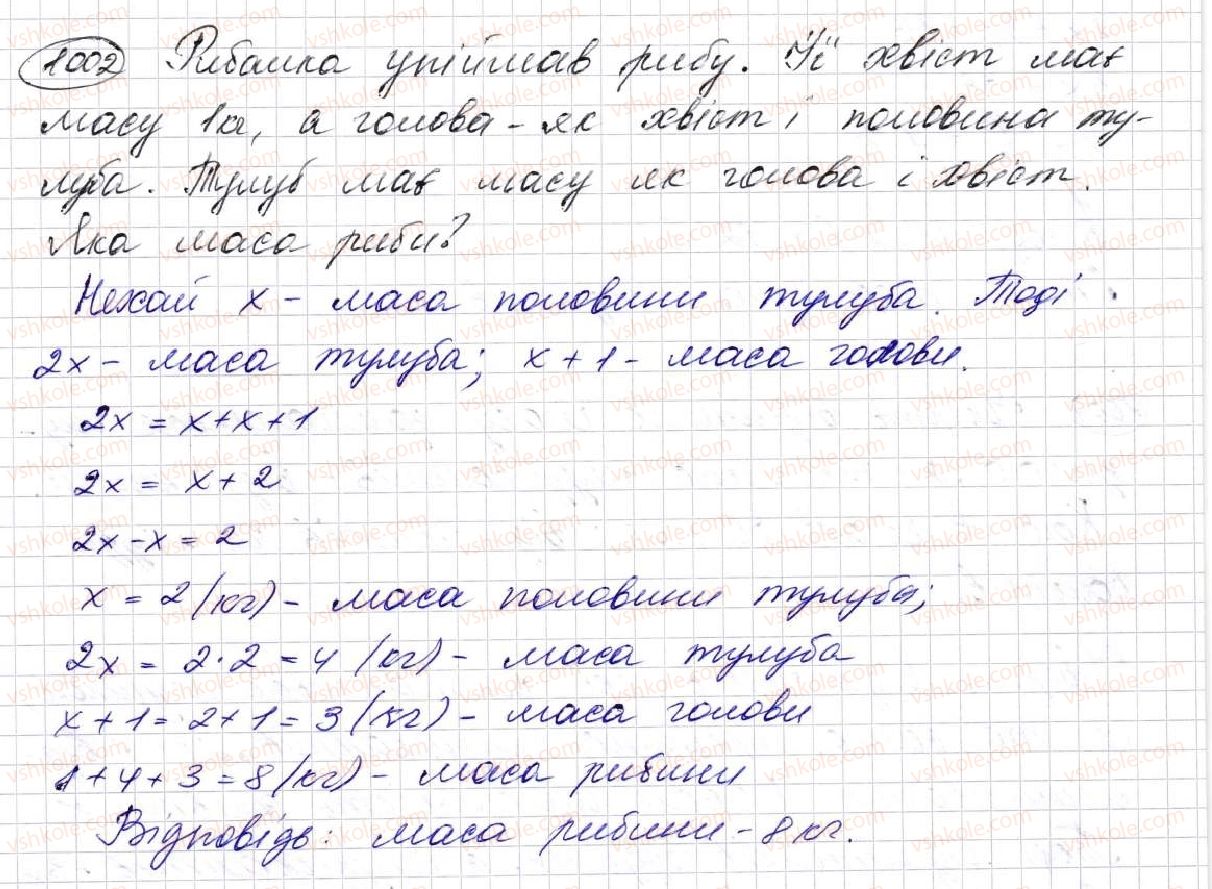 1002 Рибалка упіймав рибу. Її хвіст має
масу 1кг, а голова - як хвіст і половина ту-
луба. Тулуб має масу як голова і хвіст.
Яка маса риби?
Нехай x - маса половини тулуба. Тоді
2x - маса тулуба; x + 1 - маса голови.
2x = x + x + 1
2x = x + 2
2x - x = 2
x = 2 (кг) - маса половини тулуба;
2x = 2·2 = 4 (кг) - маса тулуба
x + 1 = 2 + 1 = 3 (кг) - маса голови
1 + 4 + 3 = 8 (кг) - маса рибини
Відповідь: маса рибини - 8 кг.